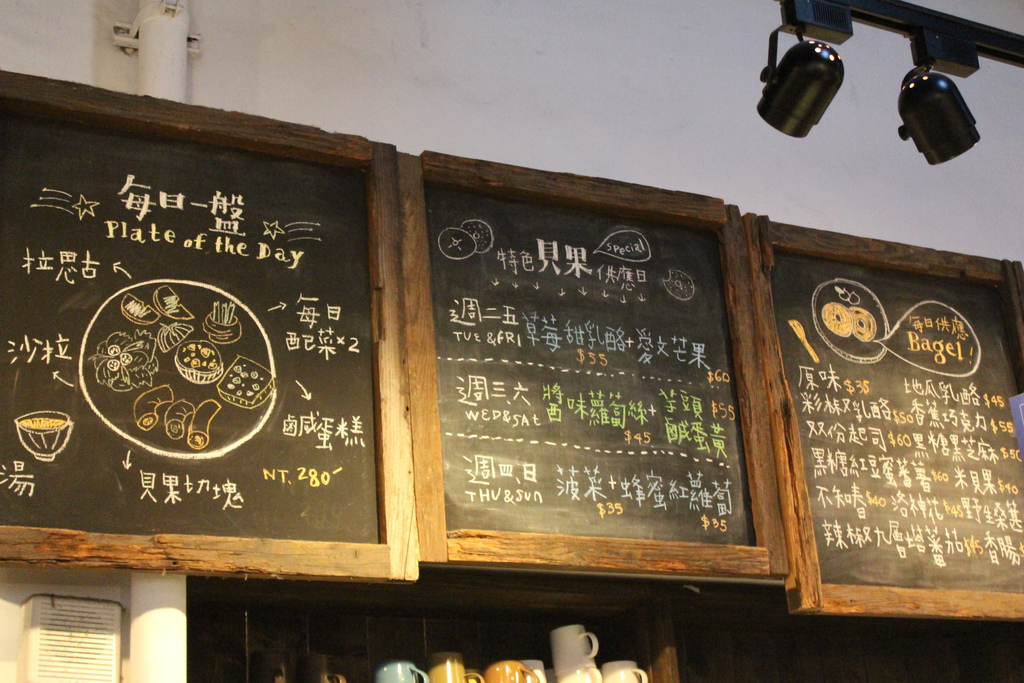 每日一盤
Plate of the Day
拉思古
每日
配菜×2
沙拉
鹹蛋糕
湯
貝果切塊
NT. 280
special
特色貝果供應日
週二五 草莓甜乳酪+愛文芒果
TUE & FRI $55 $60
週三六 醬味蘿蔔絲+芋頭 $55
WED & SAT $45 鹹蛋黃
週四日 菠菜+蜂蜜紅蘿蔔
THU & SUN $35 $35
每日供應
Bagel!
原味 $35 地瓜乳酪 $45
彩椒乳酪 $50 香蕉巧克力 $55
双份起司 $60 黑糖黑芝麻 $50
黑糖紅豆蜜蕃薯 $60 米貝果 $40
不知春 $40 洛神花 $45 野生桑葚
辣椒九層塔蕃茄 $45 香腸